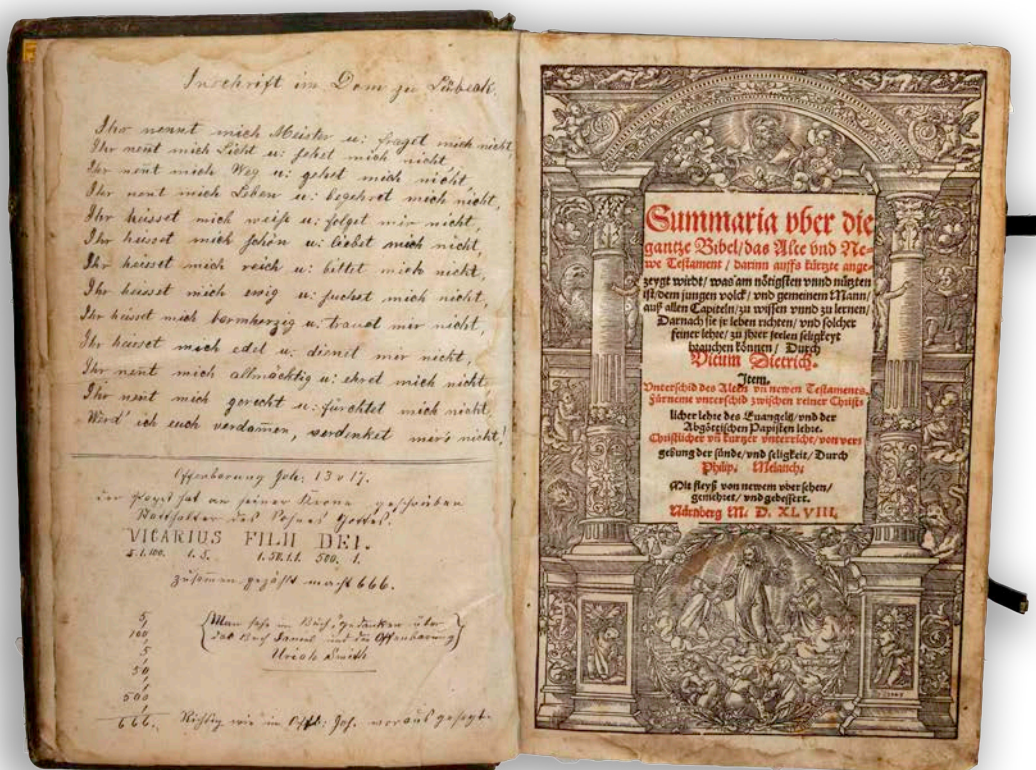 Inschrift im Dom zu Lübeck.
Ihr nennt mich Meister u: fraget mich nicht,
Ihr neñt mich Licht u: sehet mich nicht,
Ihr neñt mich Weg u: gehet mich nicht,
Ihr nent mich Leben u: begehret mich nicht,
Ihr heisset mich weise u: folget mir nicht,
Ihr heisset mich schön u: liebet mich nicht,
Ihr heisset mich reich u: bittet mich nicht,
Ihr heisset mich ewig u: suchet mich nicht,
Ihr heisset mich barmherzig u: trauet mir nicht,
Ihr heisset mich edel u: dienet mir nicht,
Ihr nent mich allmächtig u: ehret mich nicht
Ihr nent mich gerecht u: fürchtet mich nicht,
Werd' ich euch verdam̄en, verdenket mir's nicht!
Offenbarung Joh: 13 v 17.
der Papst hat an seiner Krone geschrieben
Statthalter des Sohnes Gottes.
VICARIUS FILII DEI.
5.1.100. 1.5. 1.50.1.1. 500. 1.
zusam̄en gezählt macht 666.
5,
100,
5
1
50
1
500
1
666.
Man sehe im Buch, Gedanken über
das Buch Daniel und die Offenbarung
Uriah Smith
Richtig wie in Joh. voraus gesagt.
Summaria vber die
gantze Bibel/das Alte vnd Ne-
we Testament / darinn auffs kürtzte ange-
zeygt wirdt/ was am nötigsten vnnd nützten
ist/dem jungen volck/ vnd gemeinem Mann/
auß allen Capiteln/zu wissen vnnd zu lernen/
Darnach sie jr leben richten/ vnd solcher
feiner lehre/ zu jhrer seelen seligkeyt
brauchen können / Durch
Vitum Dietrich.
Item.
Vnterschid des Alten vñ newen Testamentes.
Fürneme vnterschid zwischen reiner Christ-
licher lehre des Euangelij/vnd der
Abgöttischen Papisten lehre.
Christlicher vñ kurtzer vnterricht/von ver-
gebung der sünde/vnd seligkeit/ Durch
Philip. Melanch.
Mit fleyß von newem vbersehen/
gemehret/ vnd gebessert.
Nürnberg M. D. XLVIII.